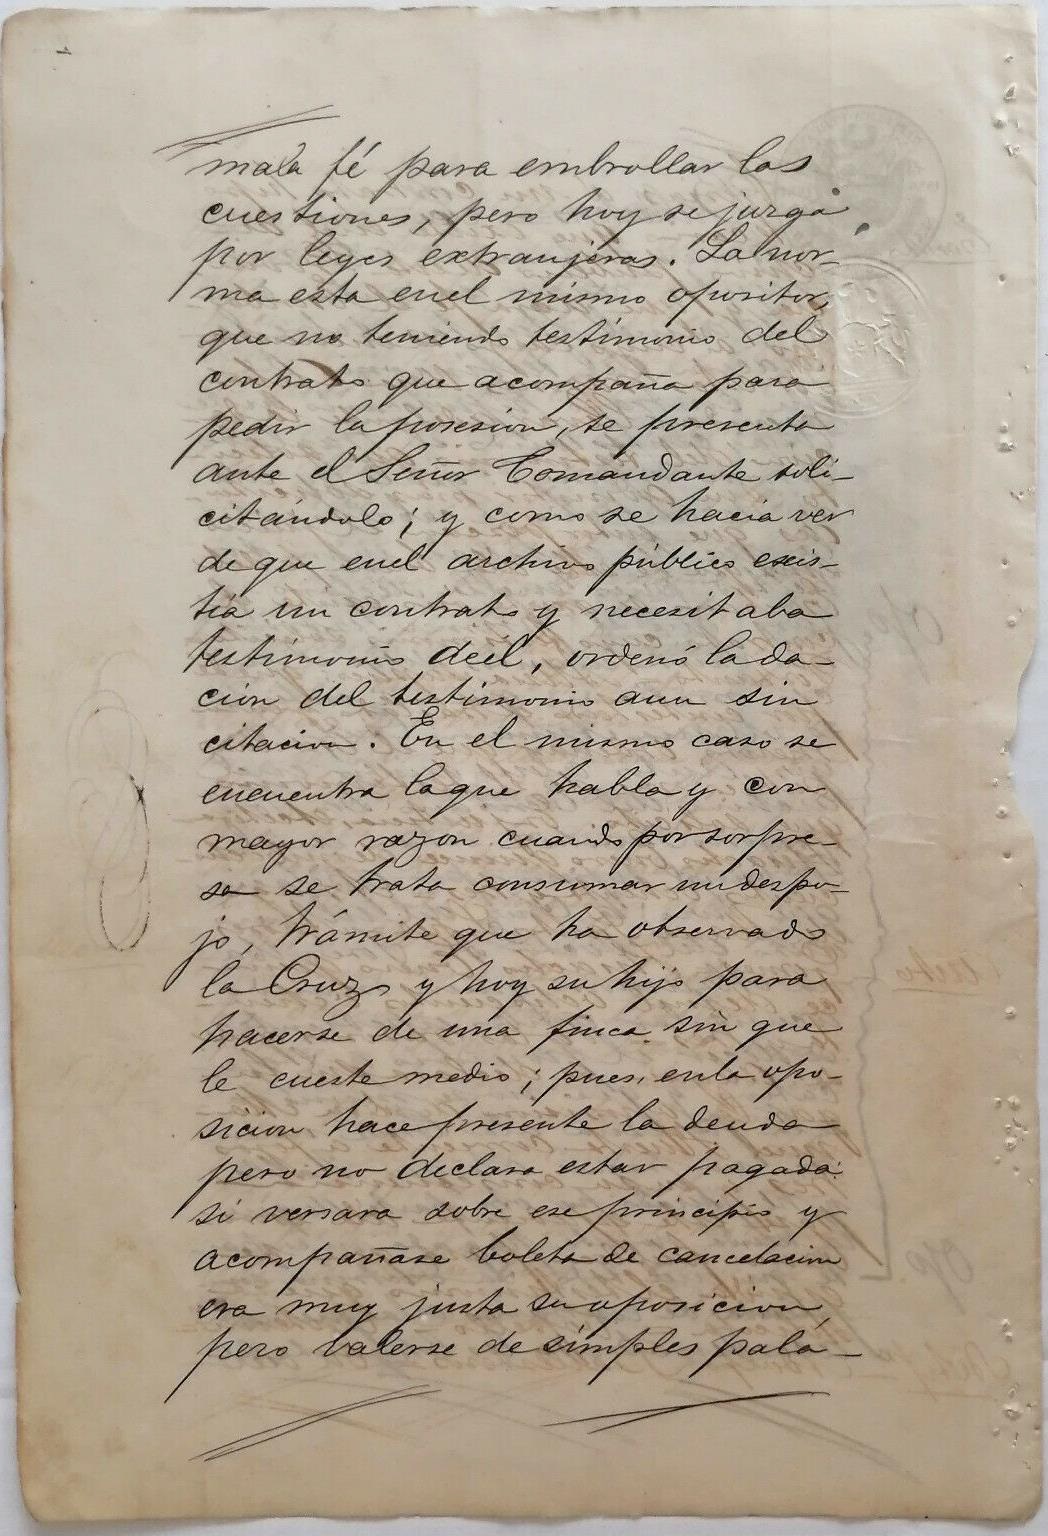 mala fé para embrollar las
cuestiones, pero hoy se juzga
por leyes extranjeras. La nor-
ma esta enel mismo opositor,
que no teniendo testimonio del
contrato que acompaña para
pedir la posesion, se presenta
ante el Señor Comandante soli-
citándolo; y como se hacia ver
de que enel archivo público exis-
tia un contrato y necesitaba
testimonio deél, ordenó la da-
cion del testimonio aun sin
citacion. En el mismo caso se
encuentra laque habla y con
mayor razon cuando por sorpre-
sa se trata consumar un despo-
jo, trámite que ha observado
la Cruz y hoy su hijo para
hacerse de una finca sin que
le cueste medio; pues, enla opo-
sicion hace presente la deuda
pero no declara estar pagada:
si versara sobre ese principio y
acompañase boleta de cancelacion
era muy justa su oposicion,
pero valerse de simples pala-